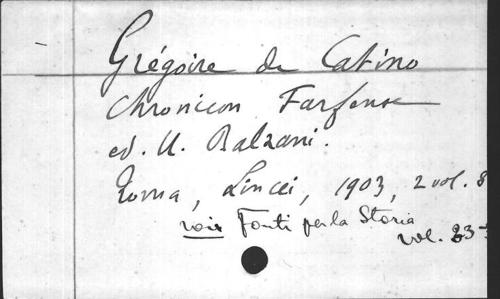 Grégoire de Catino
Chronicon Farfense
ed. U. Balzani.
Roma, Lincei, 1903, 2 vol. 8
voir Fonti per la Storia
vol. 33-